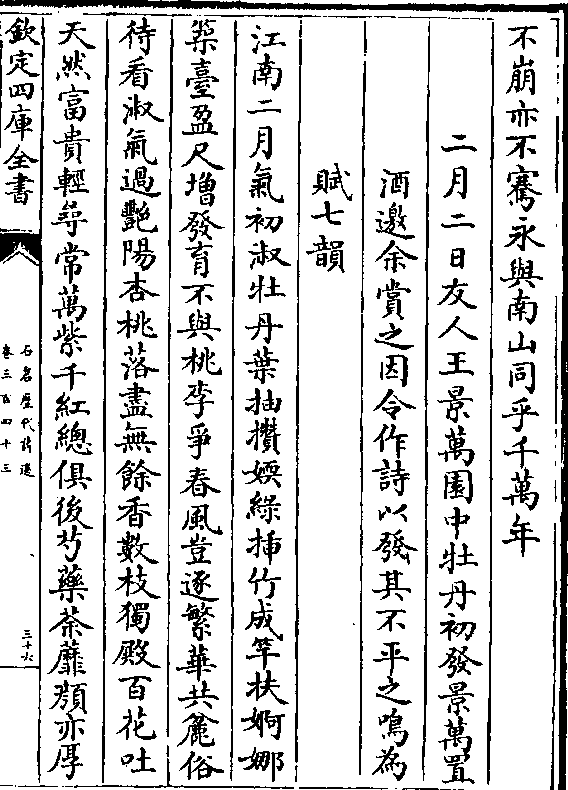 不崩亦不騫永與南山同乎千萬年
二月二日友人王景萬園中牡丹初發景萬置
酒邀余賞之因令作詩以發其不平之鳴為
賦七韻
江南二月氣初淑牡丹葉抽攢嫫綠揷竹成竿扶婀娜
築臺盈尺增發育不與桃李爭春風豈逐繁華共麄俗
待看淑氣過艷陽杏桃落盡無餘香數枝獨殿百花吐
天然富貴輕尋常萬紫千紅總俱後芍藥荼蘼顏亦厚
欽定四庫全書
石倉歷代詩選
卷三百四十三
三十六